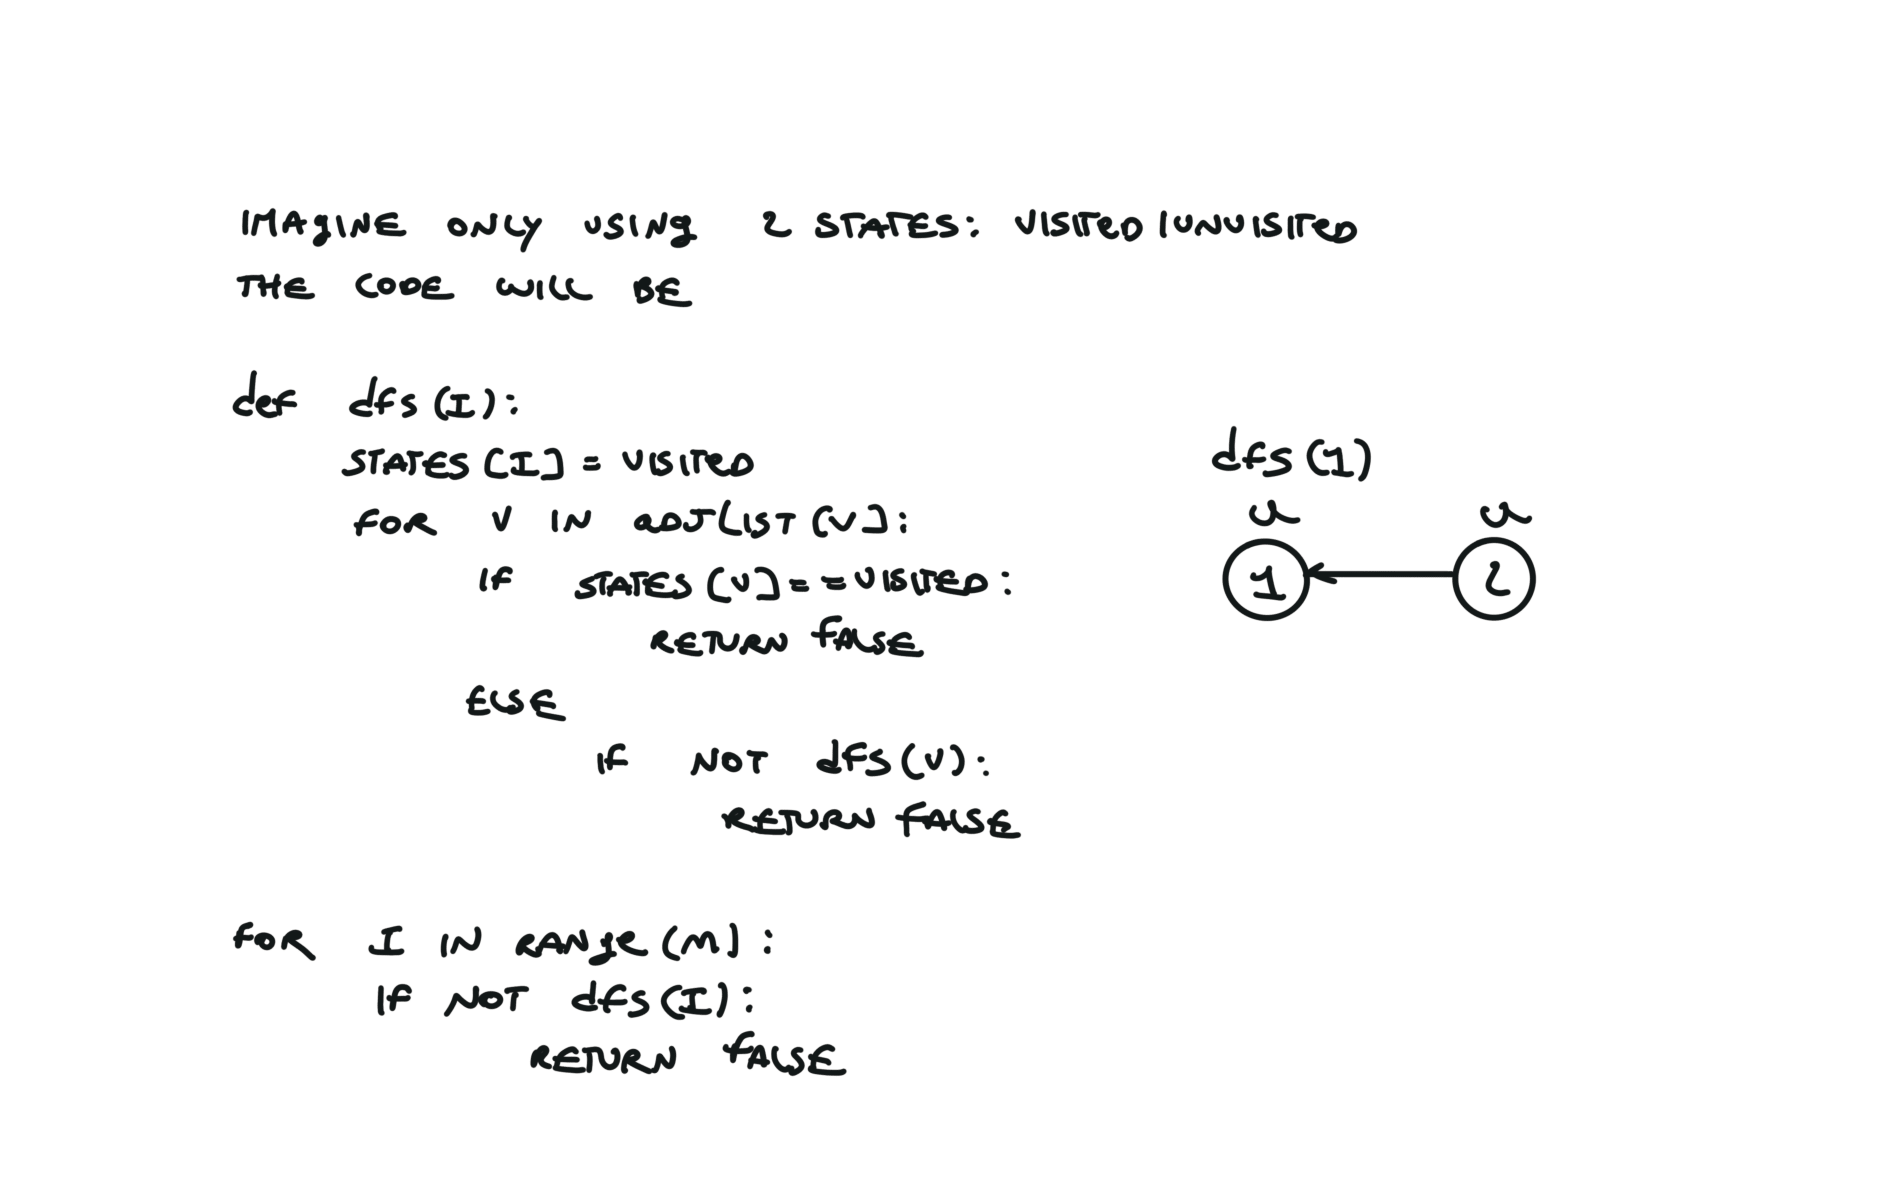 IMAGINE ONLY USING 2 STATES: VISITED/UNVISITED
THE CODE WILL BE
def dfs(I):
STATES[I] = VISITED
FOR V IN ADJLIST[V]:
IF STATES[V]==VISITED:
RETURN FALSE
ELSE
IF NOT dfs(V):
RETURN FALSE
FOR I IN RANGE(M):
IF NOT dfs(I):
RETURN FALSE
dfs(1)
u u
1 2